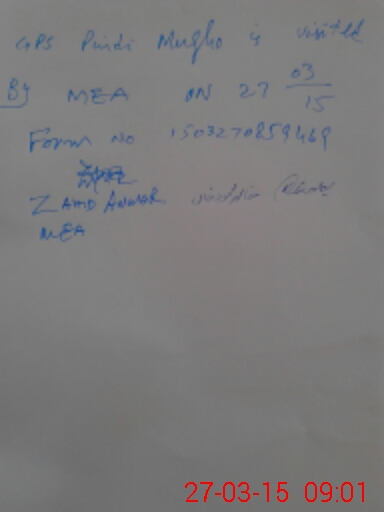 GPS Pindi Mugho is visited
By MEA ON 27 03/15
Form No 1503270859469
ZAHID ANWAR
MEA
27-03-15 09:01